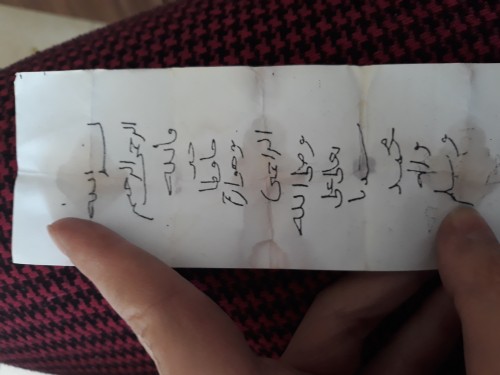 بسم الله
الرحمن الرحيم
فالله
خير
حافظا
وهو ارحم
الراحمين
وصلى الله
تعالى على
سيدنا
محمد
واله
وسلم